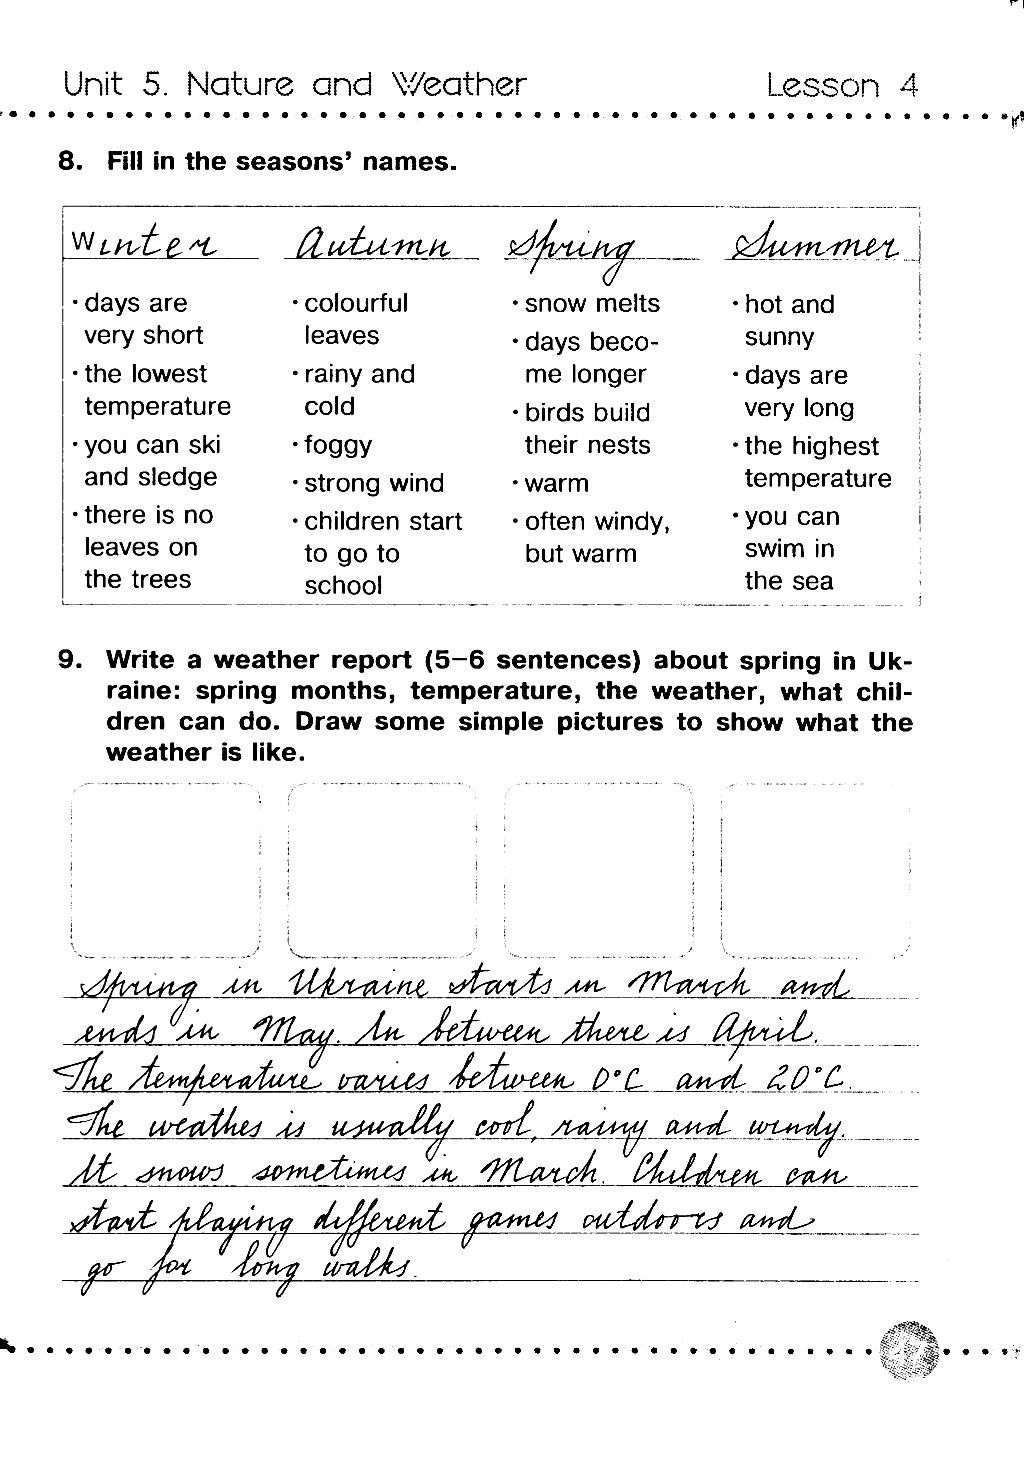 Unit 5. Nature and Weather Lesson 4
8. Fill in the seasons' names.
Winter Autumn Spring Summer
• days are
very short
• the lowest
temperature
• you can ski
and sledge
• there is no
leaves on
the trees
• colourful
leaves
• rainy and
cold
• foggy
• strong wind
• children start
to go to
school
• snow melts
• days beco-
me longer
• birds build
their nests
• warm
• often windy,
but warm
• hot and
sunny
• days are
very long
• the highest
temperature
• you can
swim in
the sea
9. Write a weather report (5–6 sentences) about spring in Uk-
raine: spring months, temperature, the weather, what chil-
dren can do. Draw some simple pictures to show what the
weather is like.
Spring in Ukraine starts in March and
ends in May. In between there is April.
The temperature varies between 0°C and 20°C.
The weathes is usually cool, rainy and windy.
It snows sometimes in March. Children can
start playing different games outdoors and
go for long walks.
47